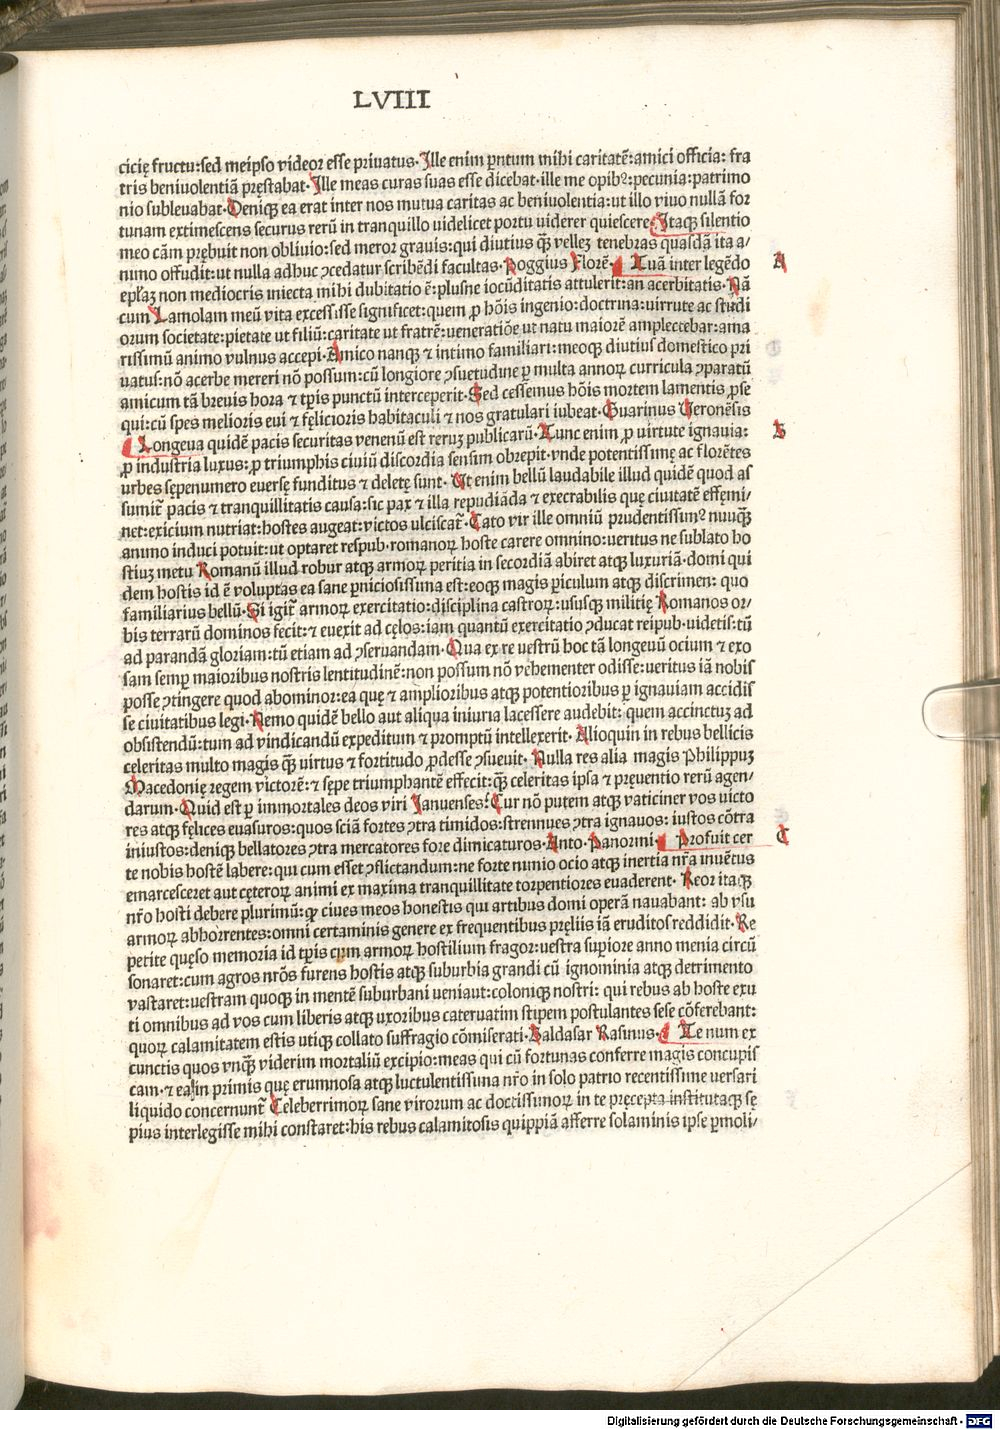 LVIII
cicię fructu:sed meipso videor esse priuatus·Ille enim p̄ntum mihi caritatē:amici officia: fra
tris beniuolentiā pręstabat·Ille meas curas suas esse dicebat·ille me opibꝰ:pecunia:patrimo
nio subleuabat·Deniqꝫ ea erat inter nos mutua caritas ac beniuolentia:ut illo viuo nullā for
tunam extimescens securus rerū in tranquillo videlicet portu viderer quiescere·Itaqꝫ silentio
meo cām prębuit non obliuio:sed meror grauis:qui diutius qꝫ̄ vellez tenebras quasdā ita a/
nimo offudit:ut nulla adhuc ꝯcedatur scribēdi facultas·Poggius Florē· Tuā inter legēdo
A
epl̄az non mediocris iniecta mihi dubitatio ē:plusne iocūditatis attulerit:an acerbitatis·Nā
cum Lamolam meū vita excessisse significet:quem ꝓ hōis ingenio:doctrina:virtute ac studi
orum societate:pietate ut filiū:caritate ut fratrē:veneratiōe ut natu maiorē amplectebar:ama
rissimū animo vulnus accepi·Amico nanqꝫ ⁊ intimo familiari:meoqꝫ diutius domestico pri
uatus:nō acerbe mereri nō possum:cū longiore ꝯsuetudine ꝑ multa annoꝝ curricula ꝯparatū
amicum tā breuis hora ⁊ tꝑis punctū interceperit·Sed cessemus hōis mortem lamentis ꝓse
qui:cū spes melioris eui ⁊ fęlicioris habitaculi ⁊ nos gratulari iubeat·Guarinus Veronēsis
Longeua quidē pacis securitas venenū est reruz publicarū·Tunc enim ꝓ virtute ignauia:
B
ꝓ industria luxus:ꝓ triumphis ciuiū discordia sensim obrepit·vnde potentissimę ac florētes
urbes sępenumero euersę funditus ⁊ deletę sunt· Ut enim bellū laudabile illud quidē quod as
sumit᷑ pacis ⁊ tranquillitatis causa:sic pax ⁊ illa repudiāda ⁊ execrabilis quę ciuitatē effęmi/
net:exicium nutriat:hostes augeat:victos ulciscat᷑·Cato vir ille omniū prudentissimꝰ nunqꝫ̄
animo induci potuit:ut optaret respub·romanoꝝ hoste carere omnino:veritus ne sublato ho
stiuz metu Romanū illud robur atqꝫ armoꝝ peritia in secordiā abiret atqꝫ luxuriā·domi qui
dem hostis id ē voluptas ea sane ꝑniciosissima est:eoqꝫ magis ꝑiculum atqꝫ discrimen: quo
familiarius bellū·Si igit᷑ armoꝝ exercitatio:disciplina castroꝝ:ususqꝫ militię Romanos or/
bis terrarū dominos fecit:⁊ euexit ad cęlos:iam quantū exercitatio ꝯducat reipub·videtis:tū
ad parandā gloriam:tū etiam ad ꝯseruandam·Qua ex re vestrū hoc tā longeuū ocium ⁊ exo
sam semꝑ maioribus nostris lentitudinē:non possum nō vehementer odisse:veritus iā nobis
posse ꝯtingere quod abominor:ea quę ⁊ amplioribus atqꝫ potentioribus ꝑ ignauiam accidis
se ciuitatibus legi·Nemo quidē bello aut aliqua iniuria lacessere audebit: quem accinctuz ad
obsistendū:tum ad vindicandū expeditum ⁊ promptū intellexerit· Alioquin in rebus bellicis
celeritas multo magis qꝫ̄ virtus ⁊ fortitudo ꝓdesse ꝯsueuit· Nulla res alia magis Philippuz
Macedonię regem victorē:⁊ sępe triumphantē effecit:qꝫ̄ celeritas ipsa ⁊ pręuentio rerū agen/
darum·Quid est ꝑ immortales deos viri Ianuenses?Cur nō putem atqꝫ vaticiner vos victo
res atqꝫ fęlices euasuros:quos sciā fortes ꝯtra timidos:strennues ꝯtra ignauos: iustos cōtra
iniustos:deniqꝫ bellatores ꝯtra mercatores fore dimicaturos·Anto·Panormi· Profuit cer
C
te nobis hostē habere:qui cum esset ꝯflictandum:ne forte nimio ocio atqꝫ inertia nr̄a inuētus
emarcesceret aut cęteroꝝ animi ex maxima tranquillitate torpentiores euaderent· Reor itaqꝫ
nr̄o hosti debere plurimū:qꝫ ciues meos honestis qui artibus domi operā nauabant: ab vsu
armoꝝ abhorrentes:omni certaminis genere ex frequentibus pręliis iā eruditos reddidit·Re
petite quęso memoria id tꝑis cum armoꝝ hostilium fragor:vestra suꝑiore anno menia circū
sonaret:cum agros nr̄os furens hostis atqꝫ suburbia grandi cū ignominia atqꝫ detrimento
vastaret:uestram quoqꝫ in mentē suburbani veniaut:coloniqꝫ nostri: qui rebus ab hoste exu
ti omnibus ad vos cum liberis atqꝫ uxoribus cateruatim stipem postulantes sese cōferebant:
quoꝝ calamitatem estis utiqꝫ collato suffragio cōmiserati·Baldasar Rasinus· Te num ex
cunctis quos vnqꝫ̄ viderim mortaliū excipio:meas qui cū fortunas conferre magis concupis
cam·⁊ ea in primis quę erumnosa atqꝫ luctulentissima nr̄o in solo patrio recentissime versari
liquido concernunt᷑ Celeberrimoꝝ sane virorum ac doctissimoꝝ in te pręcepta institutaqꝫ sę
pius interlegisse mihi constaret:his rebus calamitosis quippiā afferre solaminis ipse ꝑmoli/
Digitalisierung gefördert durch die Deutsche Forschungsgemeinschaft - DFG